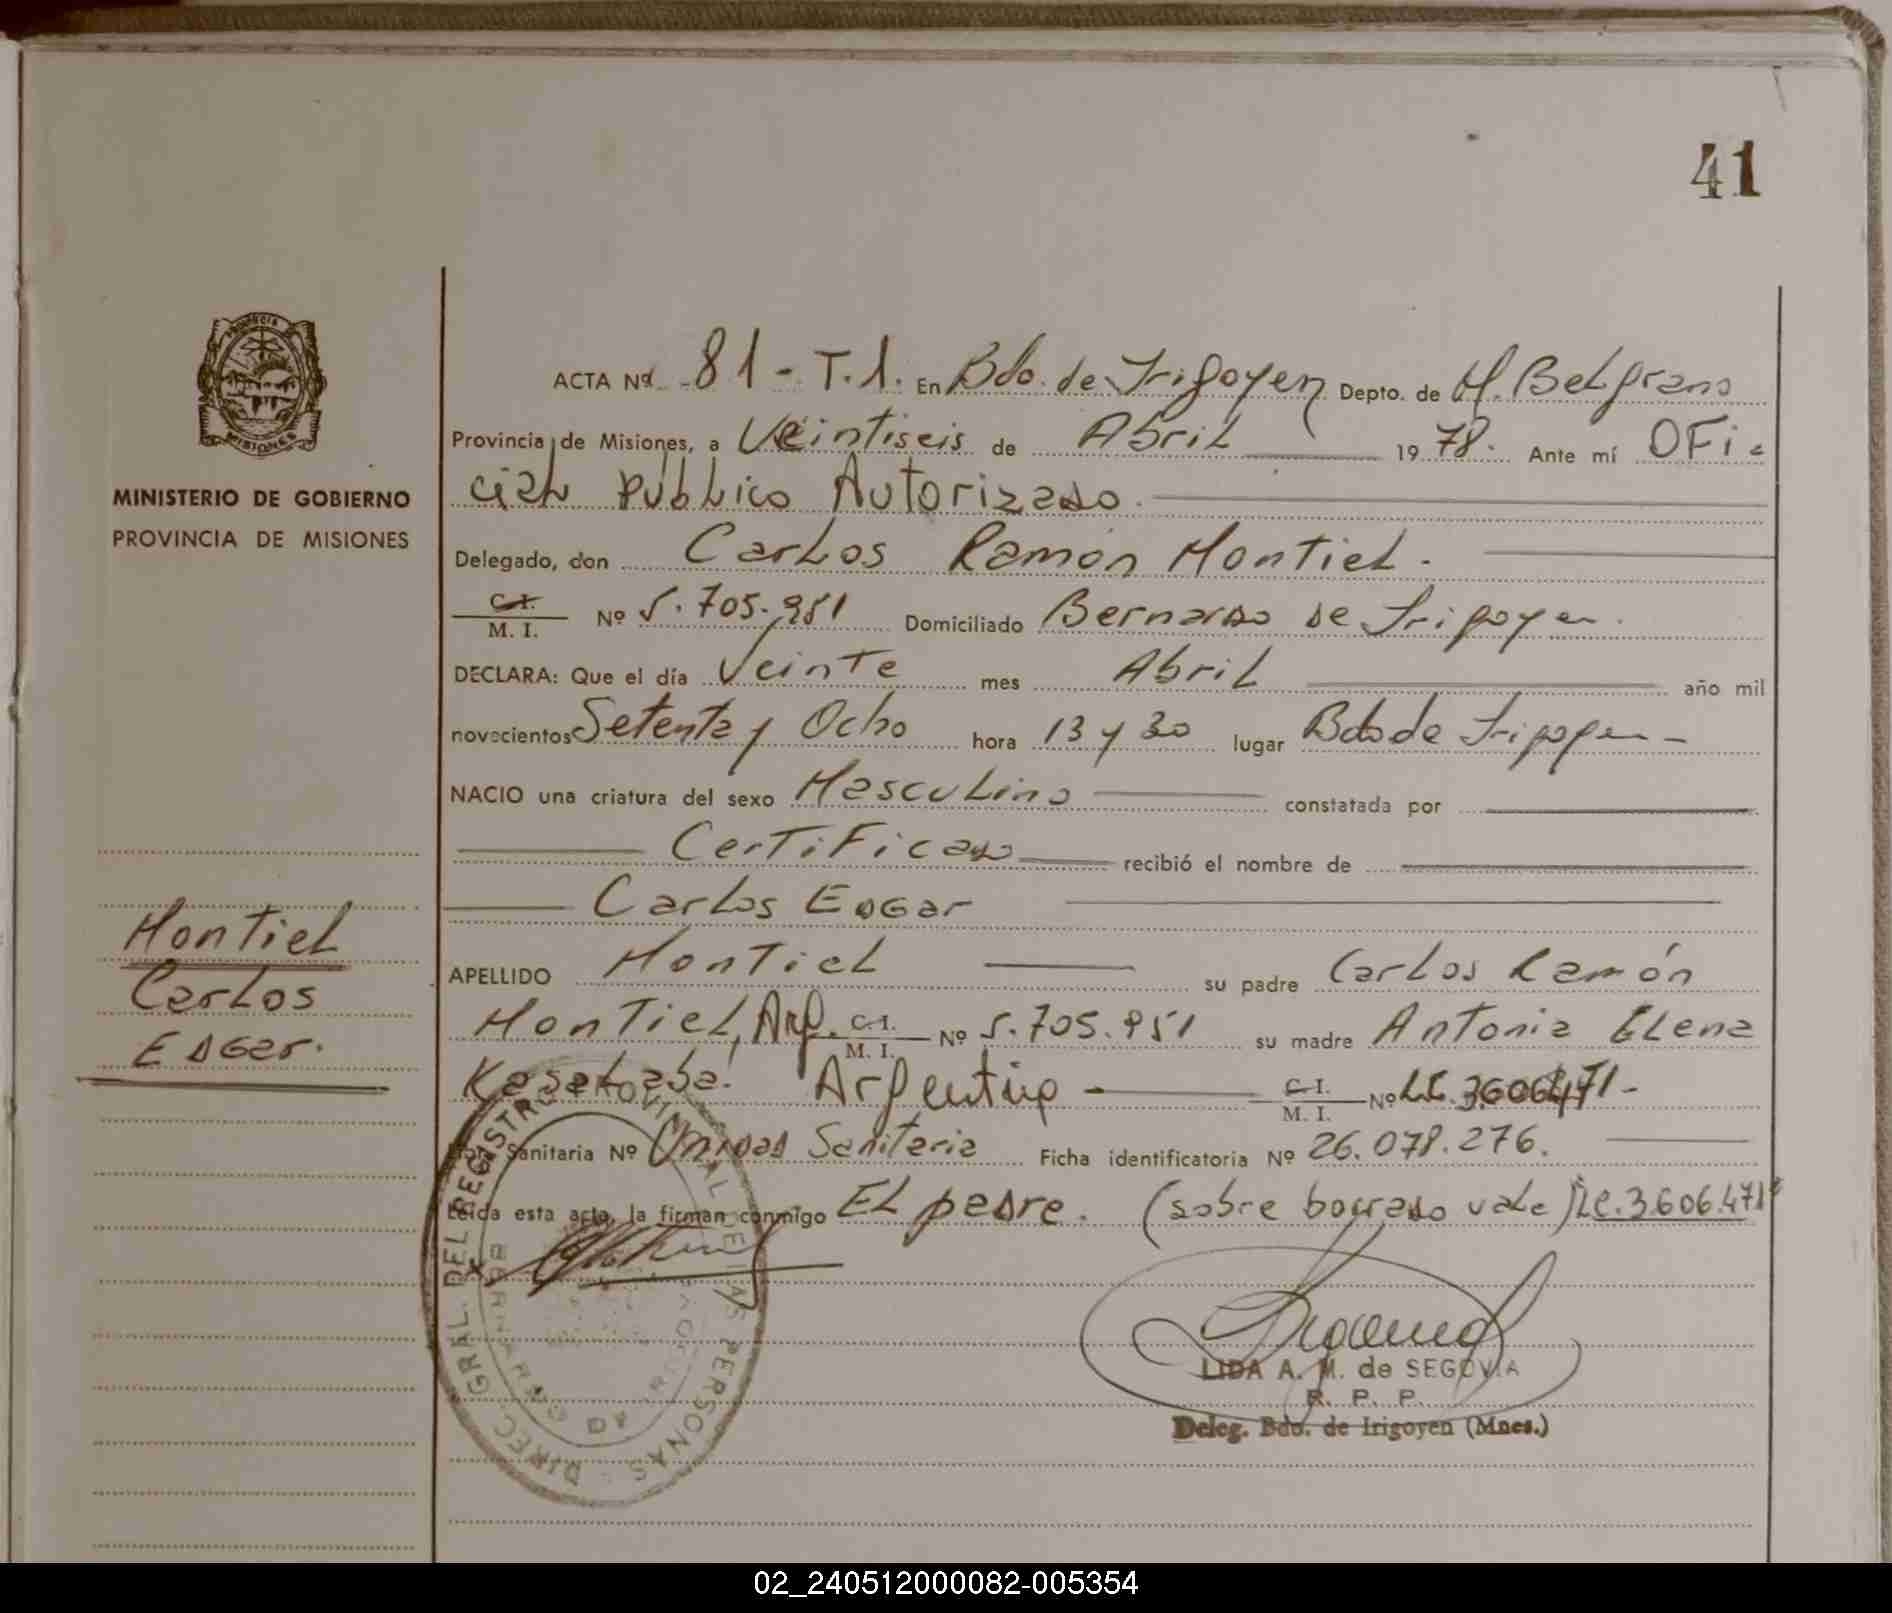 41
PROVINCIA
MISIONES
MINISTERIO DE GOBIERNO
PROVINCIA DE MISIONES
Montiel
Carlos
Edgar.
ACTA Nº 81 - T.1. En Bdo. de Irigoyen Depto. de M. Belgrano
Provincia de Misiones, a Veintiseis de Abril 1978. Ante mí Ofi-
cial Público Autorizado.
Delegado, don Carlos Ramón Montiel.
C.I.
M. I. Nº 5.705.951 Domiciliado Bernardo de Irigoyen.
DECLARA: Que el día Veinte mes Abril año mil
novecientos Setenta y Ocho hora 13 y 30 lugar Bdo de Irigoyen -
NACIO una criatura del sexo Masculino constatada por
Certificado recibió el nombre de
Carlos Edgar
APELLIDO Montiel su padre Carlos Ramón
Montiel, Arg. C.I. M. I. Nº 5.705.951 su madre Antonia Elena
Argentina - C.I. M. I. Nº LC. 3.606.471 -
Sanitaria Nº Unidad Sanitaria Ficha identificatoria Nº 26.078.276.
Leída esta acta, la firman conmigo El padre. (sobre borrado vale) LC.3.606.471
DIREC. GRAL. DEL REGISTRO PROVINCIAL DE LAS PERSONAS
BERNARDO DE IRIGOYEN
LIDA A. M. de SEGOVIA
R. P. P.
Deleg. Bdo. de Irigoyen (Mnes.)
02_240512000082-005354